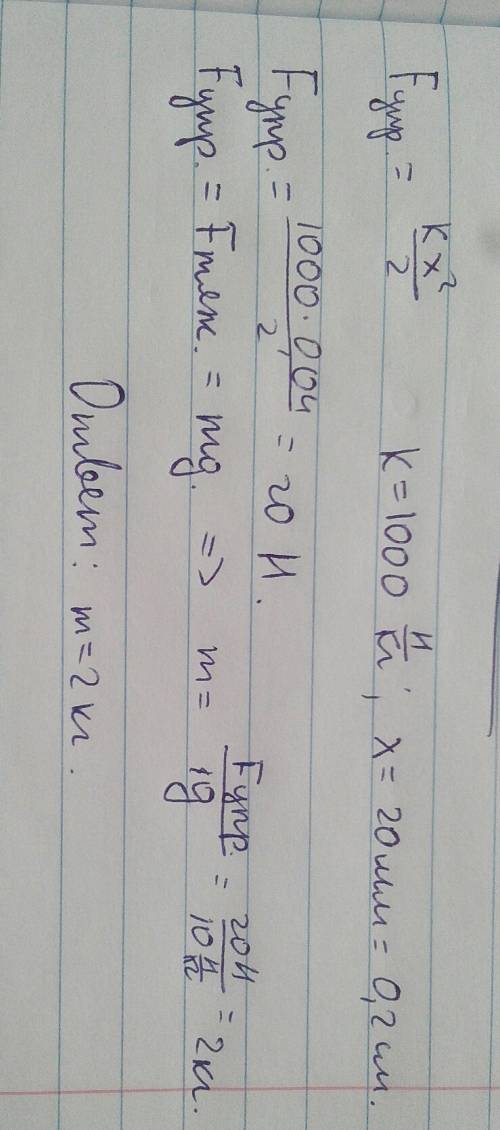 Fупр. = kx²/2 k = 1000 Н/кг; x = 20 мм = 0,2 см.
Fупр. = 1000 · 0,04/2 = 20 Н.
Fупр. = Fтяж. = mg. => m = Fупр./g = 20 Н/10 Н/кг = 2 кг.
Ответ: m = 2 кг.